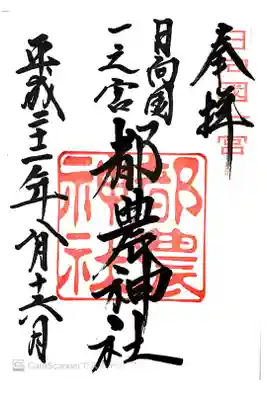 奉拝
日向国一宮
日向国
一之宮
都農神社
都農神社
平成二十一年八月十六日
CS CamScanner